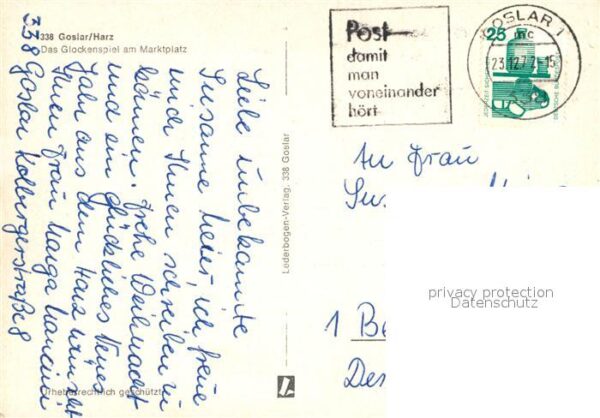 338 Goslar/Harz
Das Glockenspiel am Marktplatz
Liebe unbekannte
Susanne Meier, ich freue
mich Ihnen schreiben zu
können. Frohe Weihnacht
und ein glückliches Neues
Jahr aus dem Harz wünscht
Ihnen Frau Marga
338 Goslar Kolbergerstraße 8
Urheberrechtlich geschützt
Lederbogen-Verlag, 338 Goslar
Post
damit
man
voneinander
hört
GOSLAR 1
mc
23.12.77.-15
338
25
DEUTSCHE BUNDESPOST
An Frau
Sus
1 Be
Des
privacy protection
Datenschutz